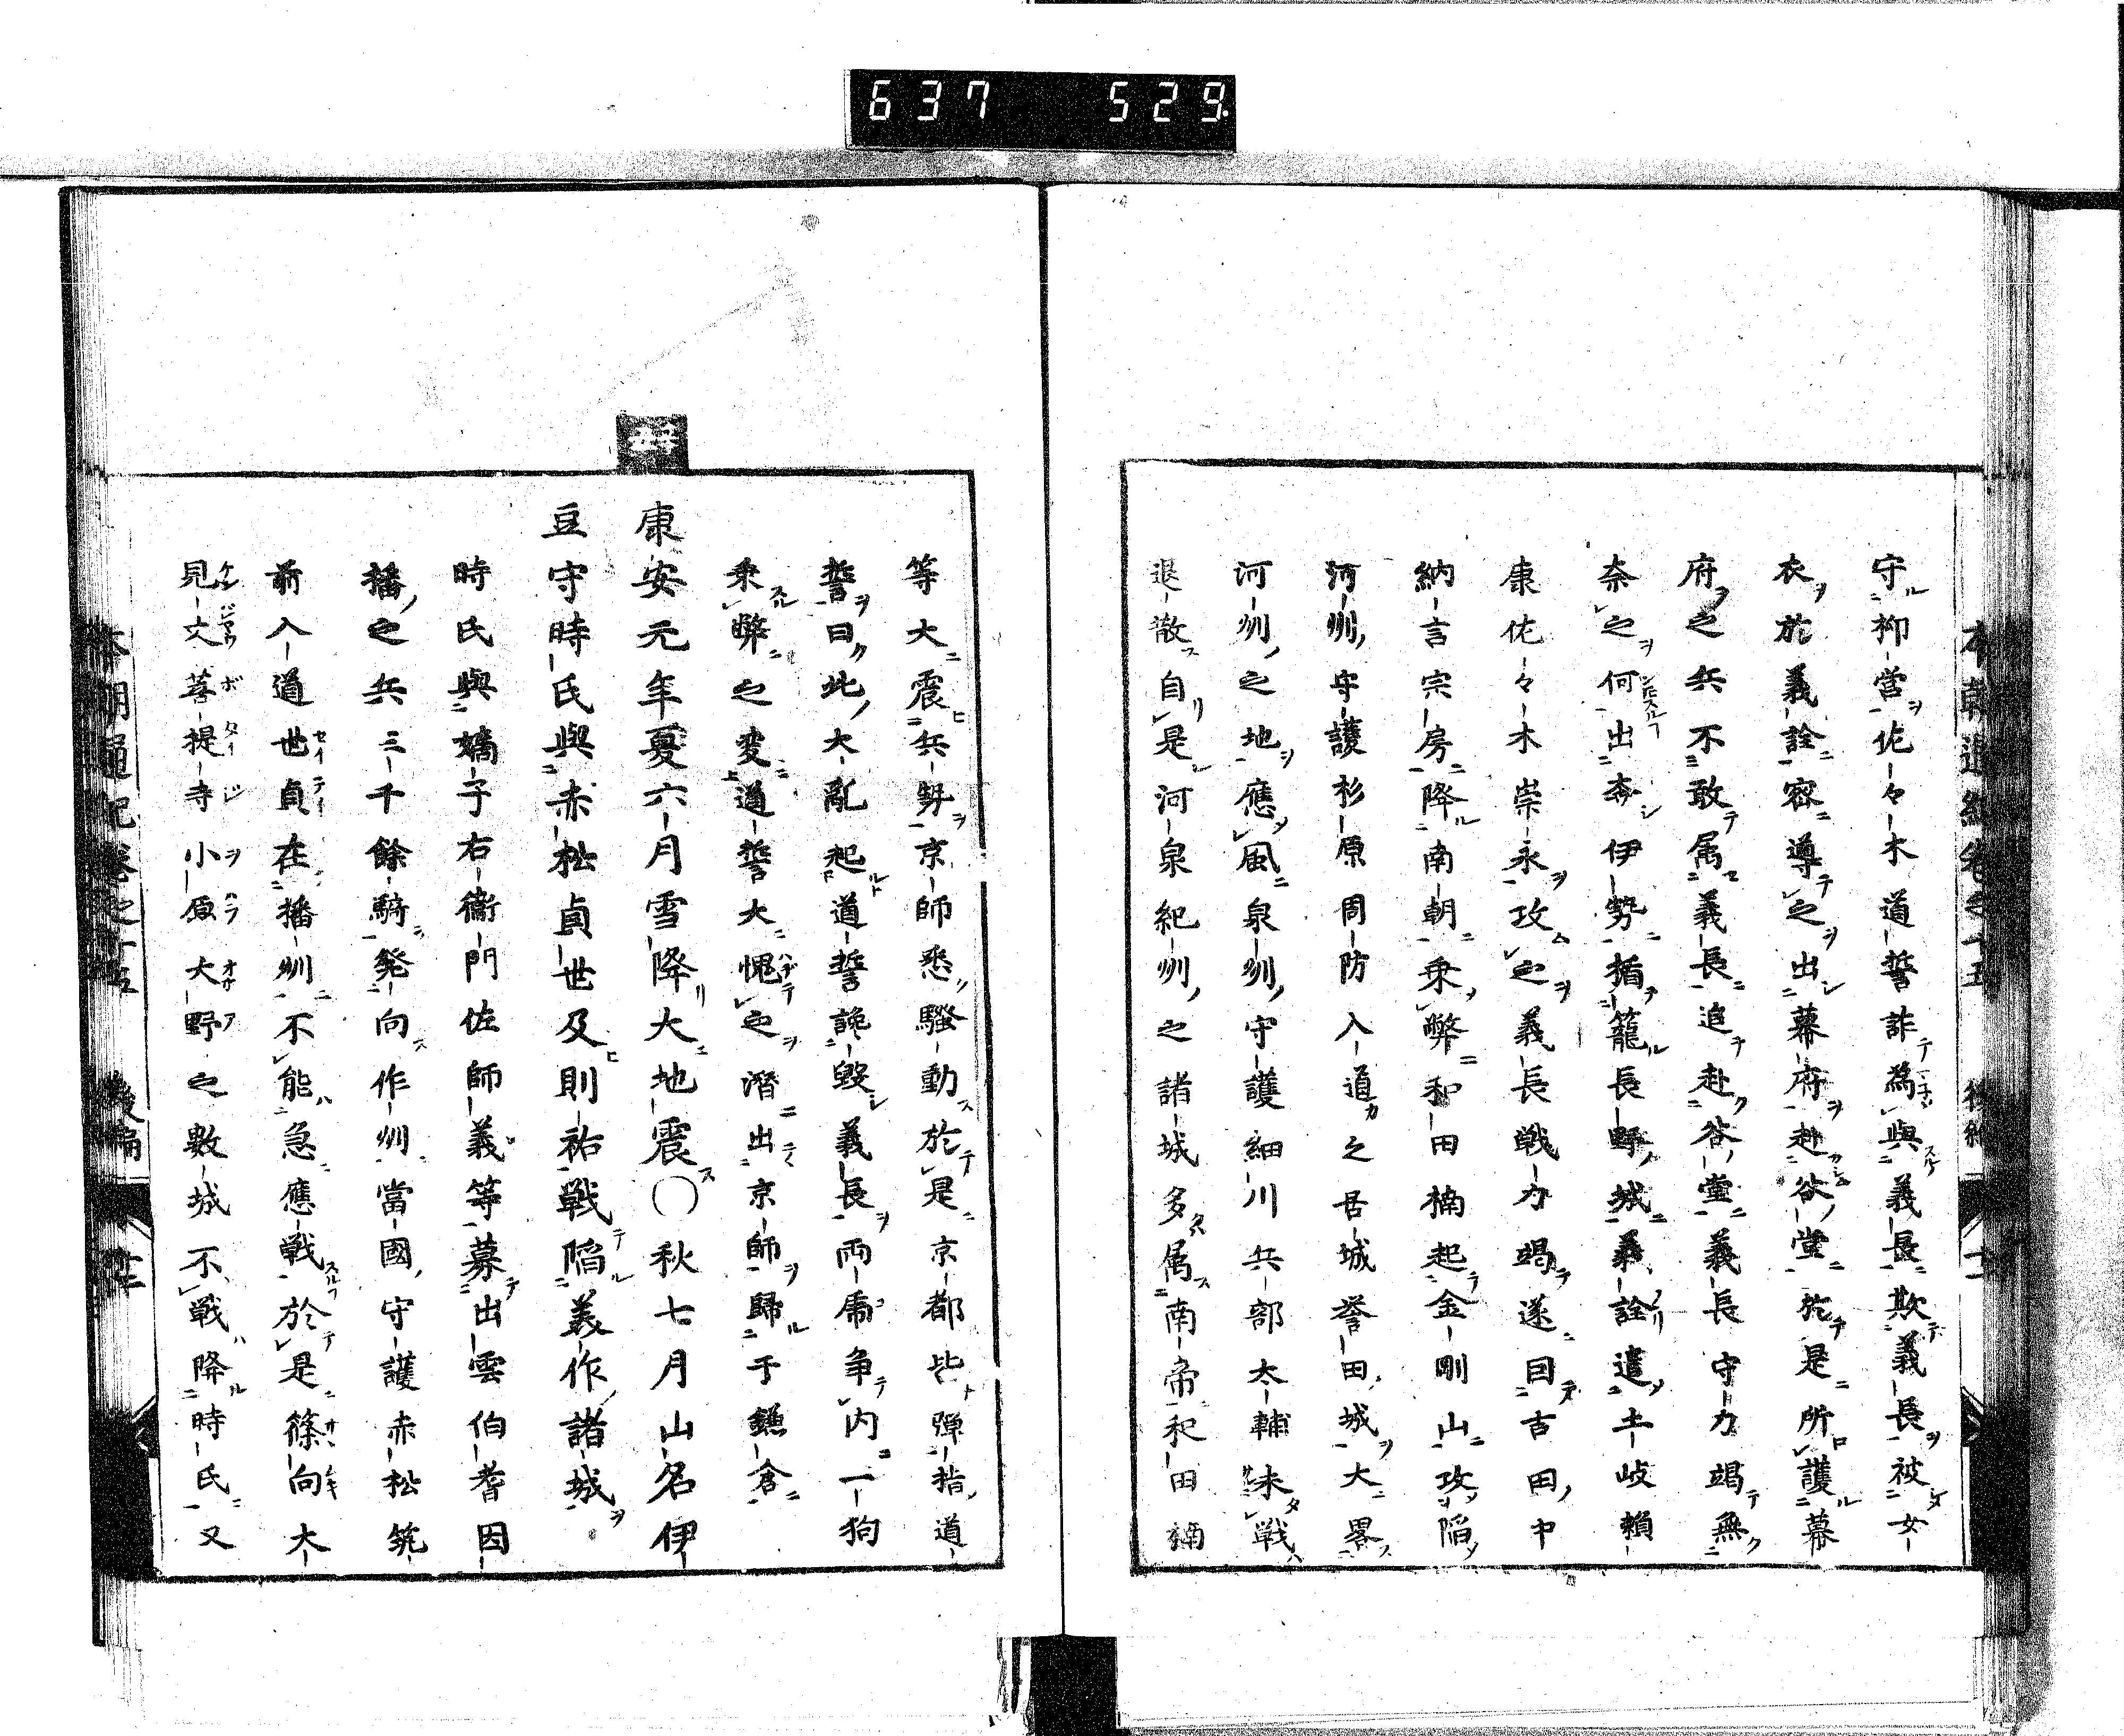 637 529
守柳營佐々木道誓詐為與義長欺義長被女
衣於義詮密導之出幕府赴谷堂於是所護幕
府之兵不敢属義長追赴谷堂義長守力竭無
奈之何出奔伊勢楯籠長野城義詮遣土岐頼
康佐々木崇永攻之義長戦力竭遂因吉田中
納言宗房降南朝乗弊和田楠起金剛山攻陥
河州守護杉原周防入道之居城誉田城大畧
河州之地應風泉州守護細川兵部太輔未戦
退散自是河泉紀州之諸城多属南帝和田楠
等大震兵勢京師悉騒動於是京都皆弾指道
誓曰此大亂起道誓讒毀義長両虎争内一狗
乗弊之変道誓大愧之潜出京師歸于鎌倉
康安元年夏六月雪降大地震〇秋七月山名伊
豆守時氏與赤松貞世及則祐戦陥義作諸城
時氏與嫡子右衞門佐師義等募出雲伯耆因
播之兵三千餘騎発向作州當國守護赤松筑
前入道世貞在播州不能急應戦於是篠向大
見丈菩提寺小原大野之數城不戦降時氏又
本朝通紀卷之十五 後編